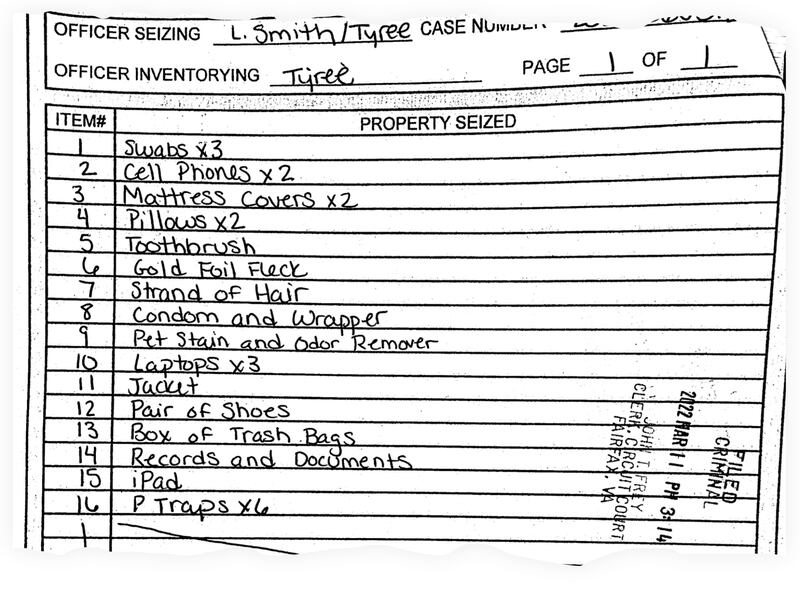 OFFICER SEIZING L. Smith/Tyree CASE NUMBER
OFFICER INVENTORYING Tyree PAGE 1 OF 1
ITEM# PROPERTY SEIZED
1 Swabs x3
2 Cell Phones x2
3 Mattress Covers x2
4 Pillows x2
5 Toothbrush
6 Gold Foil Fleck
7 Strand of Hair
8 Condom and Wrapper
9 Pet Stain and Odor Remover
10 Laptops x3
11 Jacket
12 Pair of Shoes
13 Box of Trash Bags
14 Records and Documents
15 iPad
16 P Traps x6
FILED
CRIMINAL
2022 MAR 11 PM 3:14
JOHN T. FREY
CLERK, CIRCUIT COURT
FAIRFAX, VA